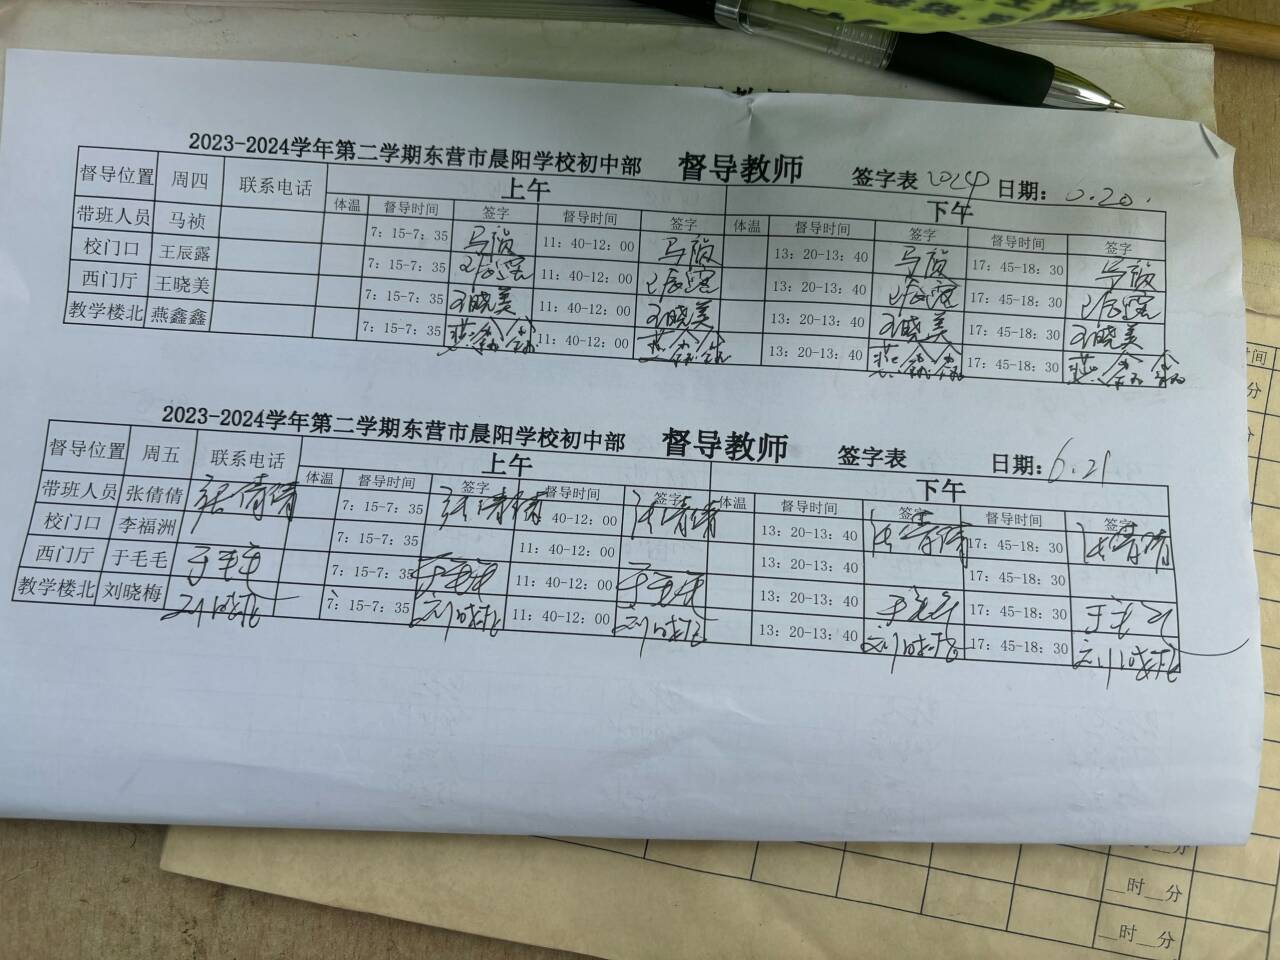 2023-2024学年第二学期东营市晨阳学校初中部 督导教师 签字表 2024 日期：6.20.
督导位置 周四 联系电话 上午 下午
体温 督导时间 签字 督导时间 签字 体温 督导时间 签字 督导时间 签字
带班人员 马祯 7：15-7：35 马祯 11：40-12：00 马祯 13：20-13：40 马祯 17：45-18：30 马祯
校门口 王辰露 7：15-7：35 王辰露 11：40-12：00 王辰露 13：20-13：40 王辰露 17：45-18：30 王辰露
西门厅 王晓美 7：15-7：35 王晓美 11：40-12：00 王晓美 13：20-13：40 王晓美 17：45-18：30 王晓美
教学楼北 燕鑫鑫 7：15-7：35 燕鑫鑫 11：40-12：00 燕鑫鑫 13：20-13：40 燕鑫鑫 17：45-18：30 燕鑫鑫
2023-2024学年第二学期东营市晨阳学校初中部 督导教师 签字表 日期：6.21
督导位置 周五 联系电话 上午 下午
体温 督导时间 签字 督导时间 签字 体温 督导时间 签字 督导时间 签字
带班人员 张倩倩 张倩倩 7：15-7：35 张倩倩 40-12：00 张倩倩 13：20-13：40 张倩倩 17：45-18：30 张倩倩
校门口 李福洲 7：15-7：35 11：40-12：00 13：20-13：40 17：45-18：30
西门厅 于毛毛 于毛毛 7：15-7：35 于毛毛 11：40-12：00 于毛毛 13：20-13：40 于毛毛 17：45-18：30 于毛毛
教学楼北 刘晓梅 刘晓梅 7：15-7：35 刘晓梅 11：40-12：00 刘晓梅 13：20-13：40 刘晓梅 17：45-18：30 刘晓梅
时间
分
分
__时__分
__时__分